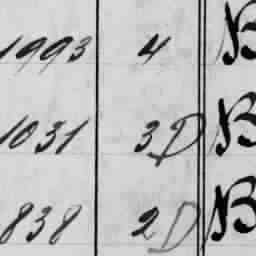 1993 4 B
1031 3D B
838 2D B